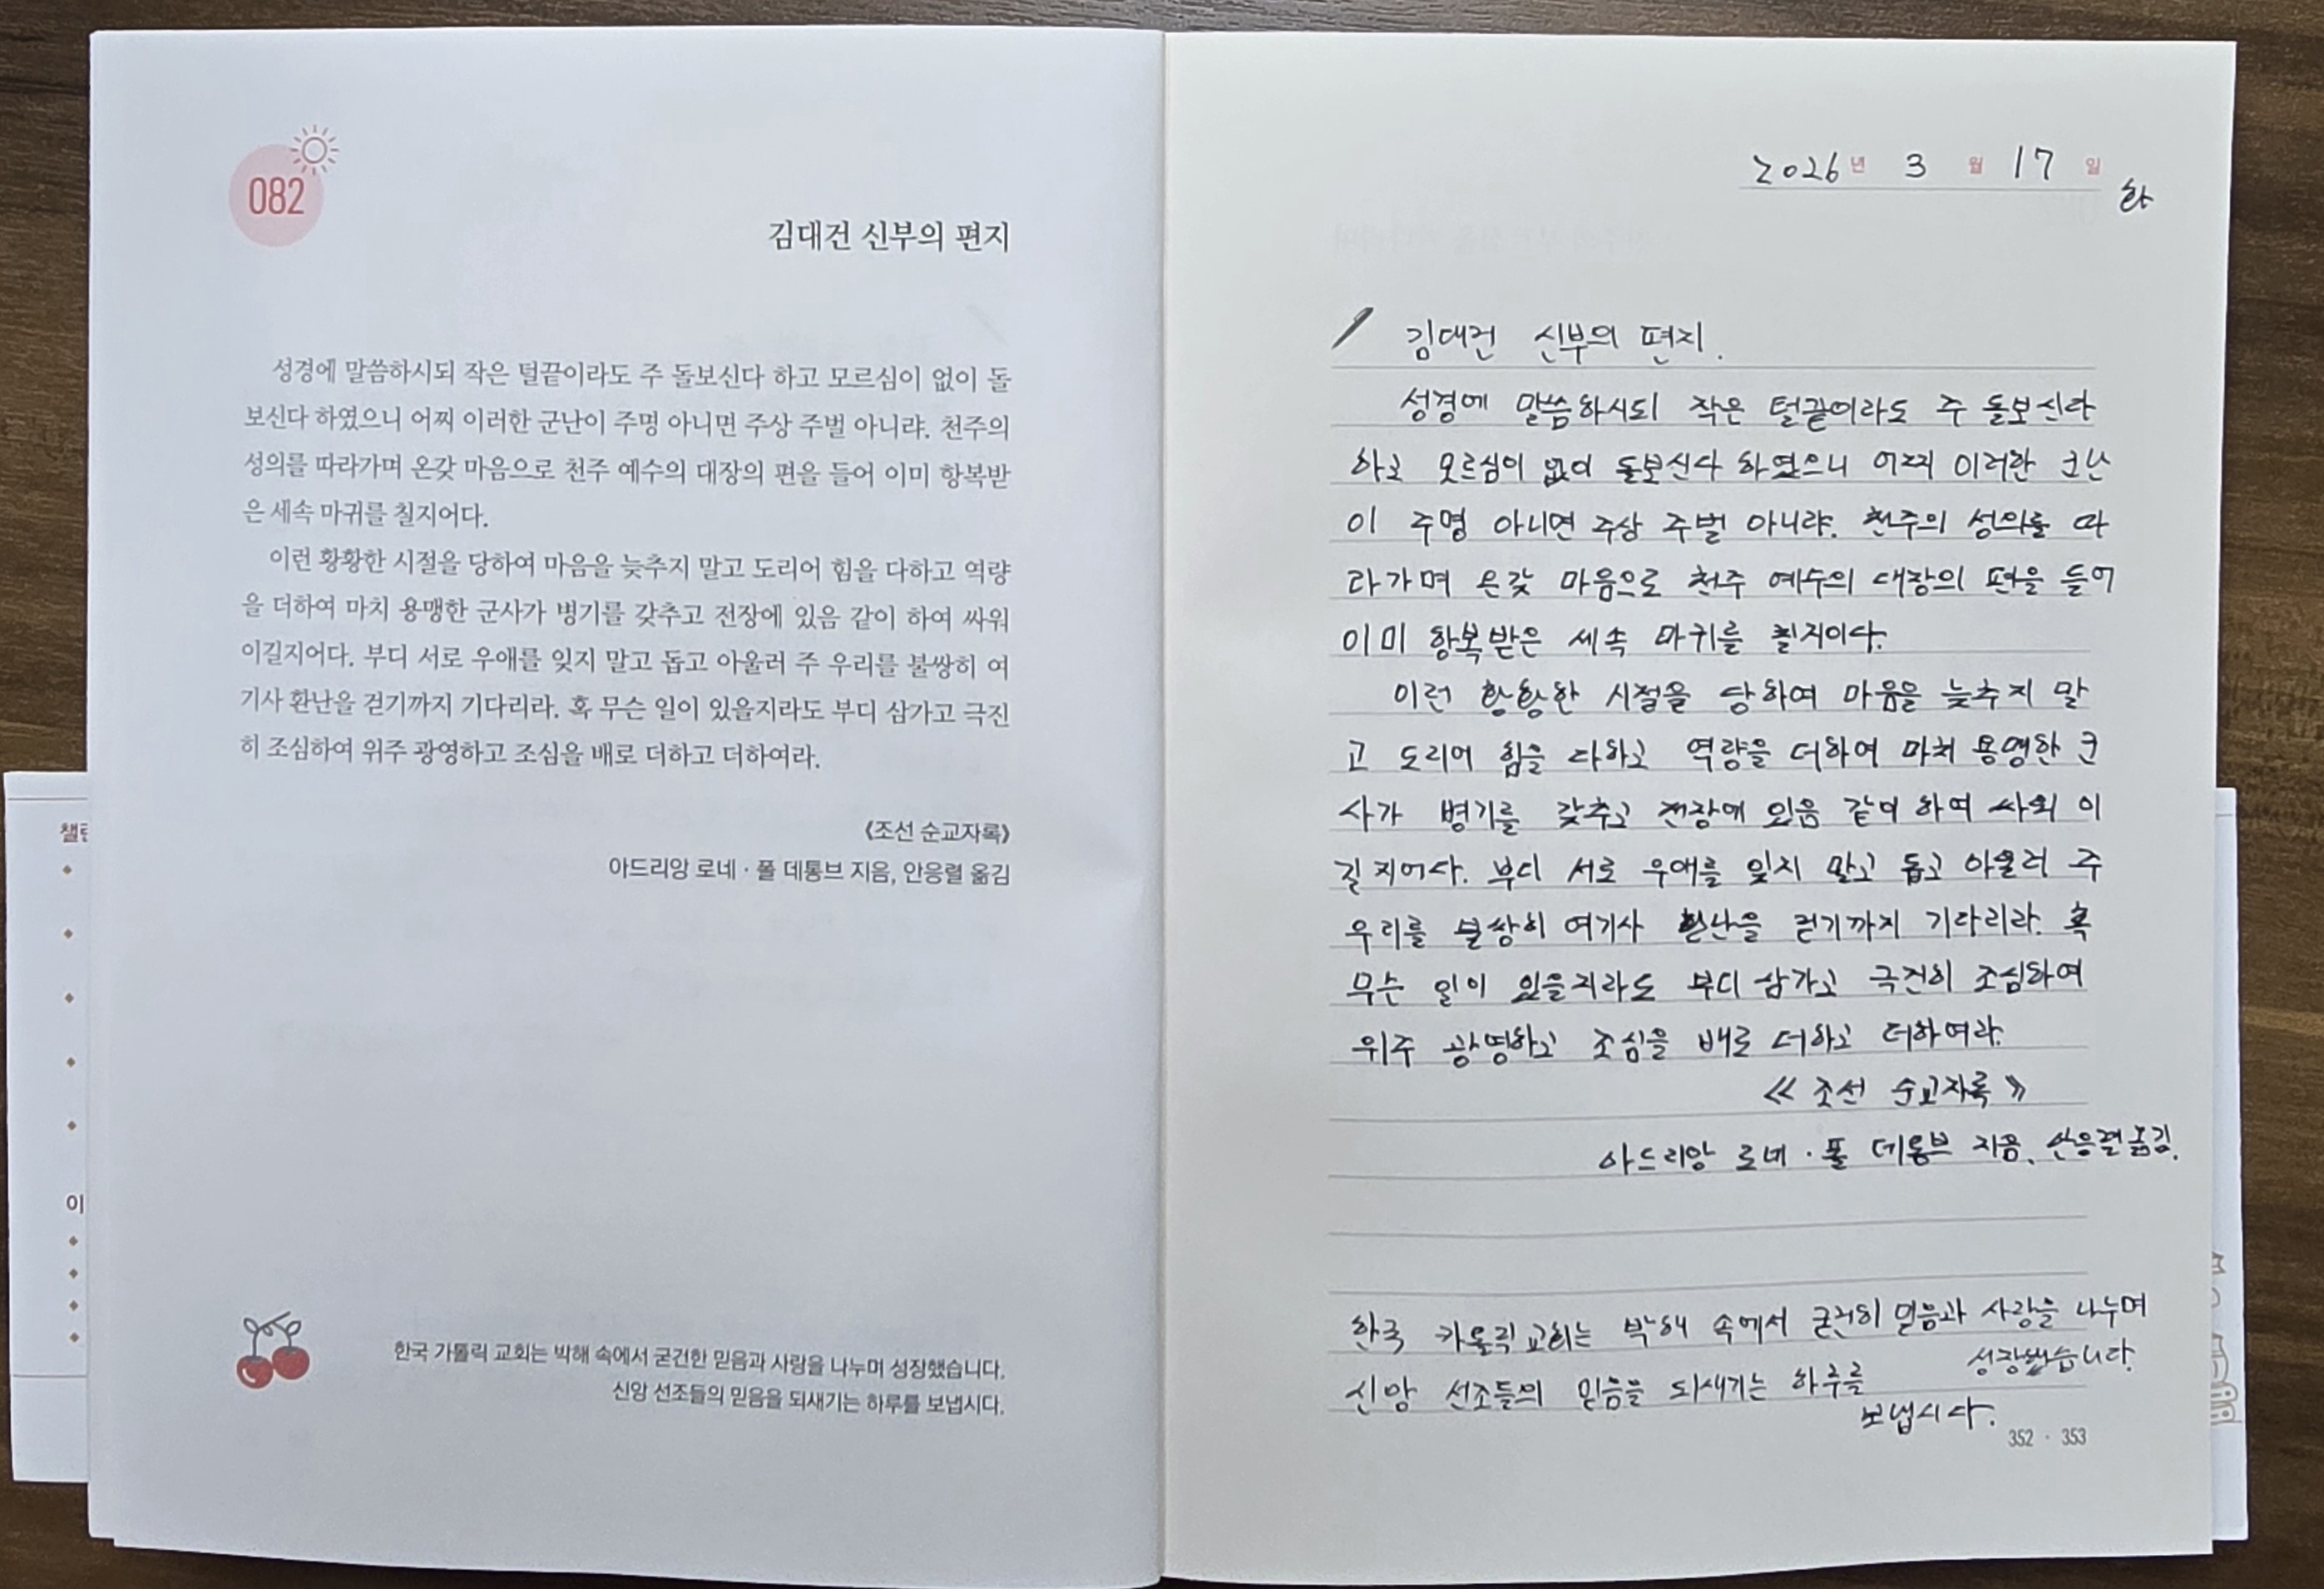 082
김대건 신부의 편지
성경에 말씀하시되 작은 털끝이라도 주 돌보신다 하고 모르심이 없이 돌
보신다 하였으니 어찌 이러한 군난이 주명 아니면 주상 주벌 아니랴. 천주의
성의를 따라가며 온갖 마음으로 천주 예수의 대장의 편을 들어 이미 항복받
은 세속 마귀를 칠지어다.
이런 황황한 시절을 당하여 마음을 늦추지 말고 도리어 힘을 다하고 역량
을 더하여 마치 용맹한 군사가 병기를 갖추고 전장에 있음 같이 하여 싸워
이길지어다. 부디 서로 우애를 잊지 말고 돕고 아울러 주 우리를 불쌍히 여
기사 환난을 걷기까지 기다리라. 혹 무슨 일이 있을지라도 부디 삼가고 극진
히 조심하여 위주 광영하고 조심을 배로 더하고 더하여라.
《조선 순교자록》
아드리앙 로네 · 폴 데통브 지음, 안응렬 옮김
한국 가톨릭 교회는 박해 속에서 굳건한 믿음과 사랑을 나누며 성장했습니다.
신앙 선조들의 믿음을 되새기는 하루를 보냅시다.
이
2026년 3월 17일
화
김대건 신부의 편지.
성경에 말씀하시되 작은 털끝이라도 주 돌보신다
하고 모르심이 없이 돌보신다 하였으니 어찌 이러한 군난
이 주명 아니면 주상 주벌 아니랴. 천주의 성의를 따
라가며 온갖 마음으로 천주 예수의 대장의 편을 들어
이미 항복받은 세속 마귀를 칠지이다.
이런 황황한 시절을 당하여 마음을 늦추지 말
고 도리어 힘을 다하고 역량을 더하여 마치 용맹한 군
사가 병기를 갖추고 전장에 있음 같이 하여 싸워 이
길지어다. 부디 서로 우애를 잊지 말고 돕고 아울러 주
우리를 불쌍히 여기사 환난을 걷기까지 기다리라. 혹
무슨 일이 있을지라도 부디 삼가고 극진히 조심하여
위주 광영하고 조심을 배로 더하고 더하여라.
《조선 순교자록》
아드리앙 로네 · 폴 데통브 지음, 안응렬 옮김.
한국 카톨릭 교회는 박해 속에서 굳건히 믿음과 사랑을 나누며
성장했습니다.
신앙 선조들의 믿음을 되새기는 하루를
보냅시다.
352 · 353